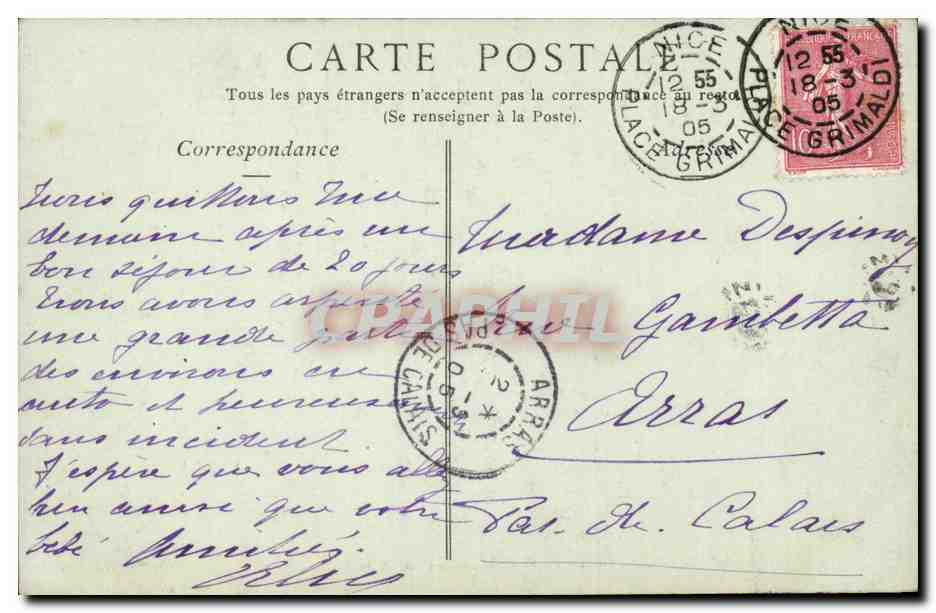 CARTE POSTALE
Tous les pays étrangers n'acceptent pas la correspondance au recto
(Se renseigner à la Poste).
Correspondance
Adresse
NICE
12 55
18-3
05
PLACE GRIMALDI
NICE
12 55
18-3
05
PLACE GRIMALDI
10
Nous quittons Nice
demain après un
bon séjour de 20 jours
Nous avons arpenté
une grande partie
des environs en
auto et heureusement
sans incident
J'espère que vous allez
bien ainsi que votre
bébé Amitiés
Madame Despinoy
Rue Gambetta
Arras
Pas-de-Calais
ARRAS
PAS-DE-CALAIS
05
CPAPHIL